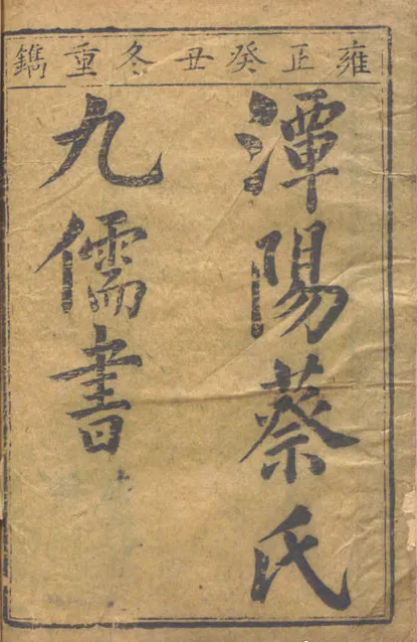 雍正癸丑冬重鐫
潭陽蔡氏
九儒書